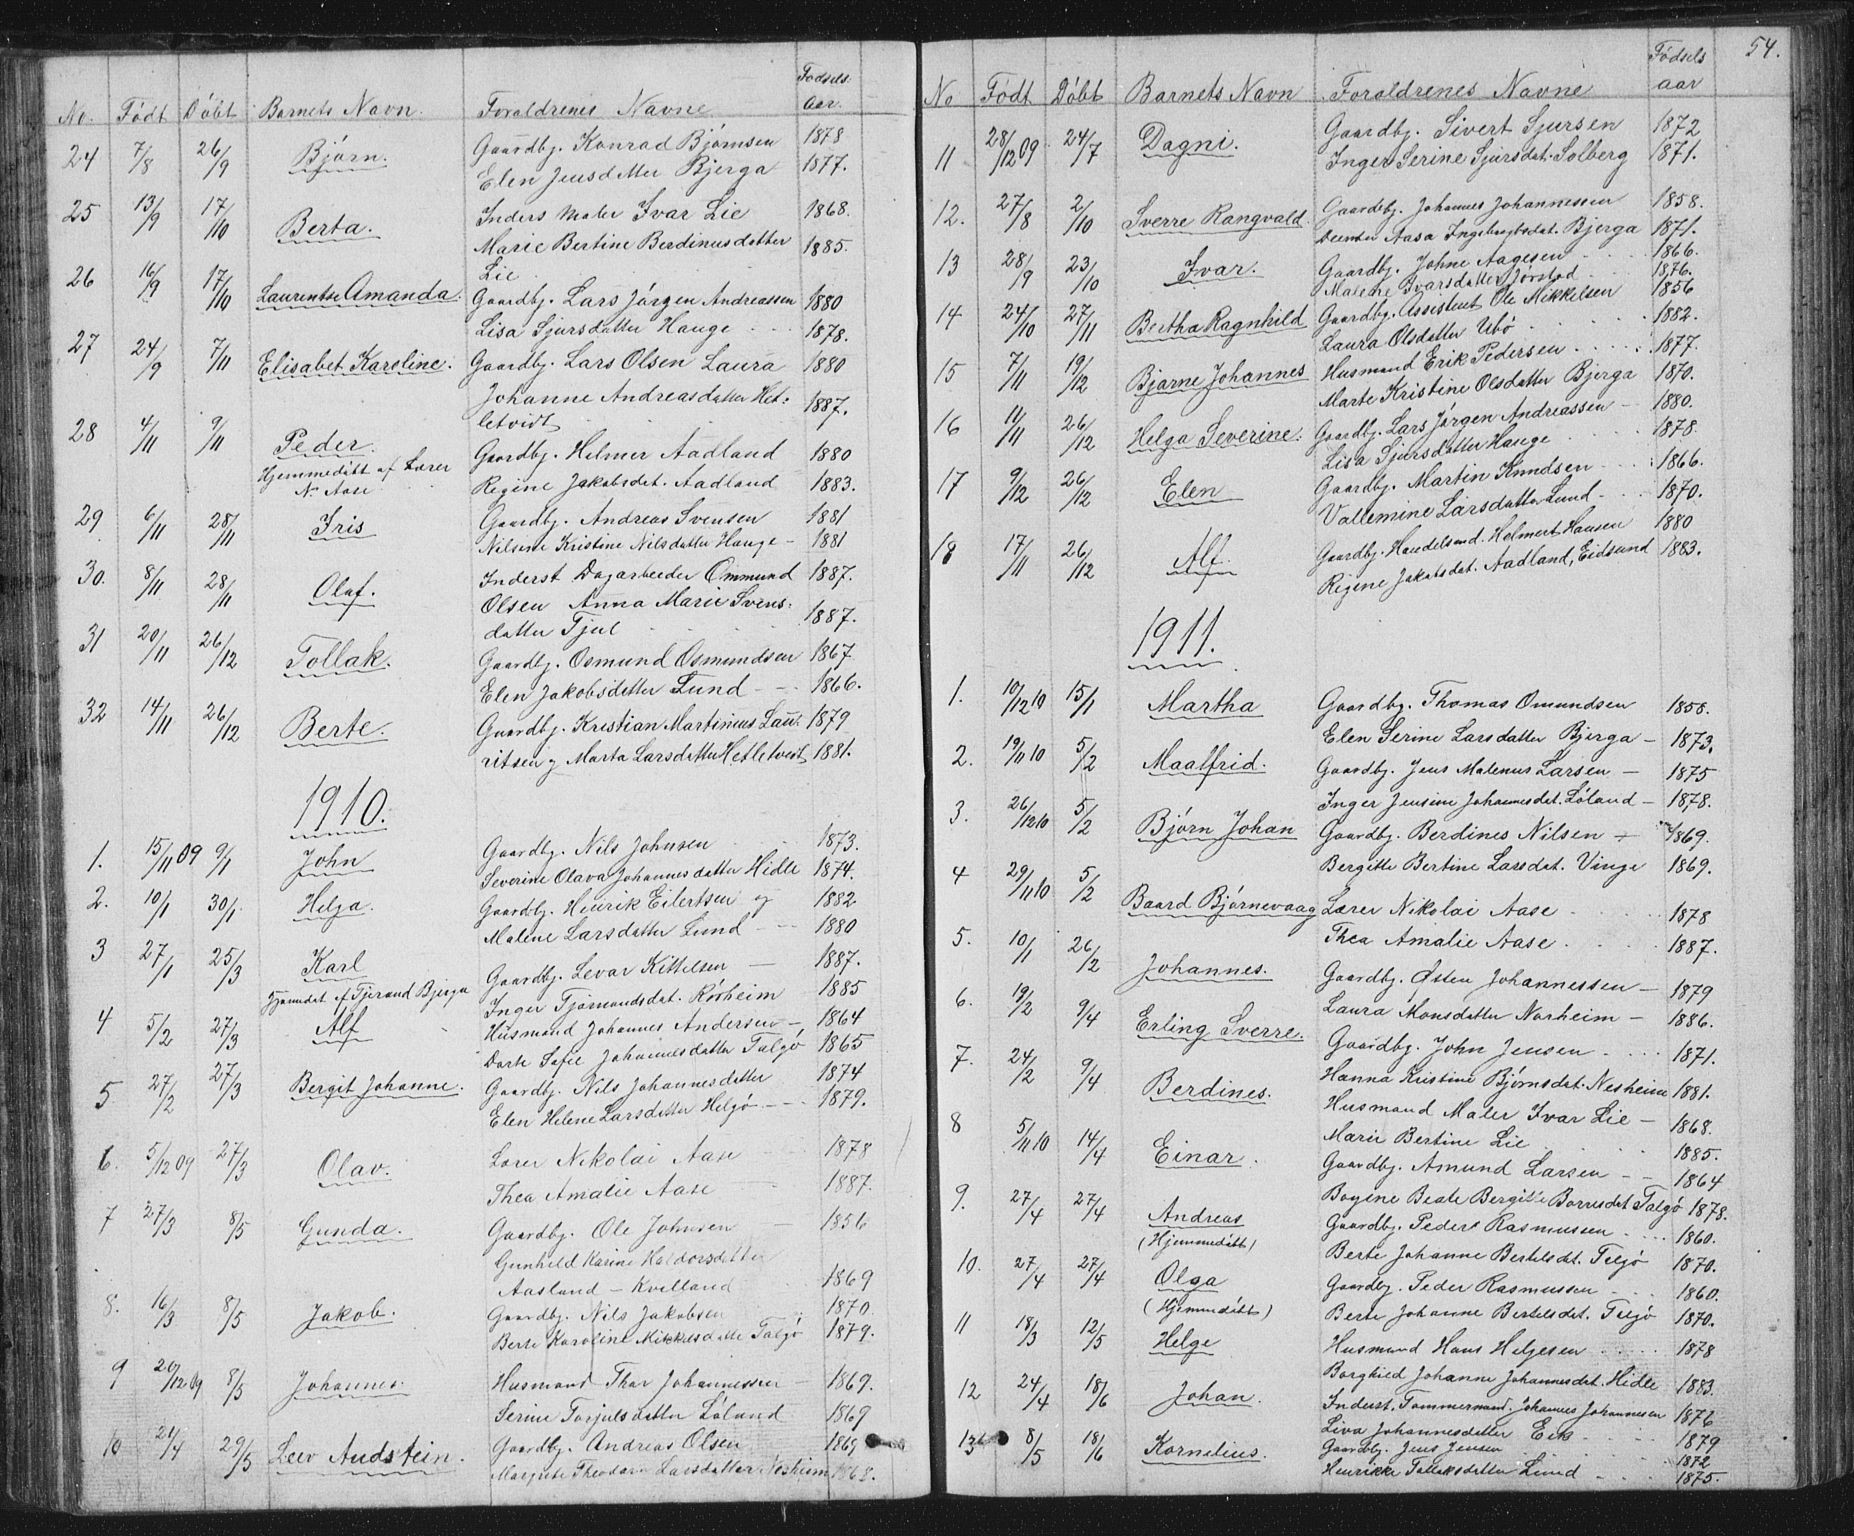 No. Født Døbt Barnets Navn. Foraldrenes Navne Fødsels Aar.
24 7/8 26/9 Bjørn. Gaardbg. Konrad Bjørnsen 1878
Elen Jensdatter Bjerga 1877.
25 13/9 17/10 Berta. Inders Maler Ivar Lie 1868.
Marie Bertine Berdinusdatter 1885.
Lie
26 16/9 17/10 Laurentse Amanda. Gaardbg. Lars Jørgen Andreassen 1880
Lisa Sjursdatter Hauge 1878.
27 24/9 7/11 Elisabet Karoline. Gaardbg. Lars Olsen Laura 1880
Johanne Andreasdatter Het- 1887.
letvidt
28 4/11 9/11 Peder. Gaardbg. Helmer Aadland 1880
Hjemmedøbt af Lærer N. Aase Regine Jakobsdat. Aadland 1883.
29 6/11 28/11 Iris Gaardbg. Andreas Svensen 1881
Nilsine Kristine Nilsdatter Hauge 1881
30. 8/11 28/11 Olaf. Inderst Dagarbeider Ommund 1887.
Olsen Anna Marie Svens- 1887.
datter Fjul
31 20/11 26/12 Tollak. Gaardbg. Osmund Osmundsen 1867
Elen Jakobsdatter Lund 1866.
32 14/11 26/12 Berte. Gaardbg. Kristian Martinius Lau- 1879
ritsen og Marta Larsdatter Hetletvedt 1881.
1910.
1. 15/11 09 9/1 John Gaardbg. Nils Johnsen 1873.
Severine Olava Johannesdatter Hidle 1874.
2. 10/1 30/1 Helga. Gaardbg. Henrik Eilertsen og 1882
Malene Larsdatter Lund 1880
3 27/1 25/3 Karl Gaardbg. Levar Kittelsen 1887.
Hjemdøt af Tjerand Bjerga Inger Tjørnandsdat. Rørheim 1885
4 5/2 27/3 Alf Husmand Johannes Andersen 1864
Dorte Sofie Johannesdatter Talgø 1865
5 27/2 27/3 Bergit Johanne. Gaardbg. Nils Johannesdatter 1874
Elen Helene Larsdatter Helgø 1879.
6. 5/12 09 27/3 Olav. Lærer Nikolai Aase 1878
Thea Amalie Aase 1887
7 27/3 8/5 Gunda. Gaardbg. Ole Johnsen 1856
Gunhild Karine Haldorsdatter
Aasland - Kvilland 1869
8. 16/3 8/5 Jakob. Gaardbg. Nils Jakobsen 1870
Berte Karoline Mikkelsdatte Talgø 1879.
9 20/12 09 8/5 Johannes. Husmand Thor Johannessen 1869.
Serine Torjulsdatter Løland 1869
10 21/4 29/5 Leiv Audstein. Gaardbg. Andreas Olsen 1869
Margrete Theodora Larsdatter Nesheim 1868.
54.
No Født Døbt Barnets Navn Foraldrenes Navne Fødsels aar
11 28/12 09 24/7 Dagni. Gaardbg. Sivert Sjursen 1872
Inger Serine Sjursdat. Solberg 1871.
12. 27/8 2/10 Sverre Rangvald. Gaardbg. Johannes Johannessen 1858.
Aasa Ingebregtsdat. Bjerga 1871.
13 28/9 23/10 Ivar. Gaardbg. Johne Aagesen 1866.
Malene Ivarsdatter Jørstad 1876.
14 24/10 27/11 Bertha Ragnhild Gaardbg. Assistent Ole Mikkelsen 1856
Laura Olsdatter Ubø 1882.
15 7/11 19/12 Bjarne Johannes Husmand Erik Pedersen 1877.
Marte Kristine Olsdatter Bjerga 1870.
16 11/11 26/12 Helga Severine. Gaardbg. Lars Jørgen Andreassen 1880.
Lisa Sjursdatter Hauge 1878.
17 9/12 26/12 Elen Gaardbg. Martin Knudsen 1866.
Vallemine Larsdatter Lund 1870.
18 17/11 26/12 Alf. Gaardbg. Handelsmd. Helmert Hansen 1880
Regine Jakobsdat. Aadland, Eidsund 1883.
1911.
1. 10/12 10 15/1 Martha Gaardbg. Thomas Omundsen 1858.
Elen Serine Larsdatter Bjerga 1873.
2. 19/11 10 5/2 Maalfrid. Gaardbg. Jens Matenus Larsen 1875
Inger Jensine Johannesdat. Løland 1878.
3. 26/12 10 5/2 Bjørn Johan Gaardbg. Berdines Nilsen 1869.
Bergitte Bertine Larsdat. Vinge 1869.
4 29/11 10 5/2 Baard Bjørnevaag Lærer Nikolai Aase 1878
Thea Amalie Aase 1887.
5. 10/1 26/2 Johannes. Gaardbg. Østen Johannessen 1879
Laura Monsdatter Norheim 1886.
6. 19/2 9/4 Erling Sverre. Gaardbg. John Jensen 1871.
Hanna Kristine Bjørnsdat. Nesheim 1881.
7. 24/2 9/4 Berdines. Husmand Maler Ivar Lie 1868.
Marie Bertine Lie 1885.
8 5/11 10 14/4 Einar. Gaardbg. Amund Larsen 1864
Boyene Beate Bergitte Borresdat Talgø 1878.
9. 27/4 27/4 Andreas Gaardbg. Peder Rasmussen 1860.
(Hjemmedøbt) Berte Johanne Bertelsdat. Talgø 1870.
10. 27/4 27/4 Olga Gaardbg. Peder Rasmussen 1860.
(Hjemmedøbt) Berte Johanne Bertelsdat. Talgø 1870.
11 18/3 12/5 Helge Husmand Hans Helgesen 1878
Borghild Johanne Johannesdat. Hidle 1883.
12 24/4 18/6 Johan. Inderst. Tømmermand. Johannes Johannesen 1876
Liva Johannesdatter Eik 1879
13. 8/5 18/6 Kornelius. Gaardbg. Jens Jensen 1872
Henrikke Tollaksdatter Lund 1875.